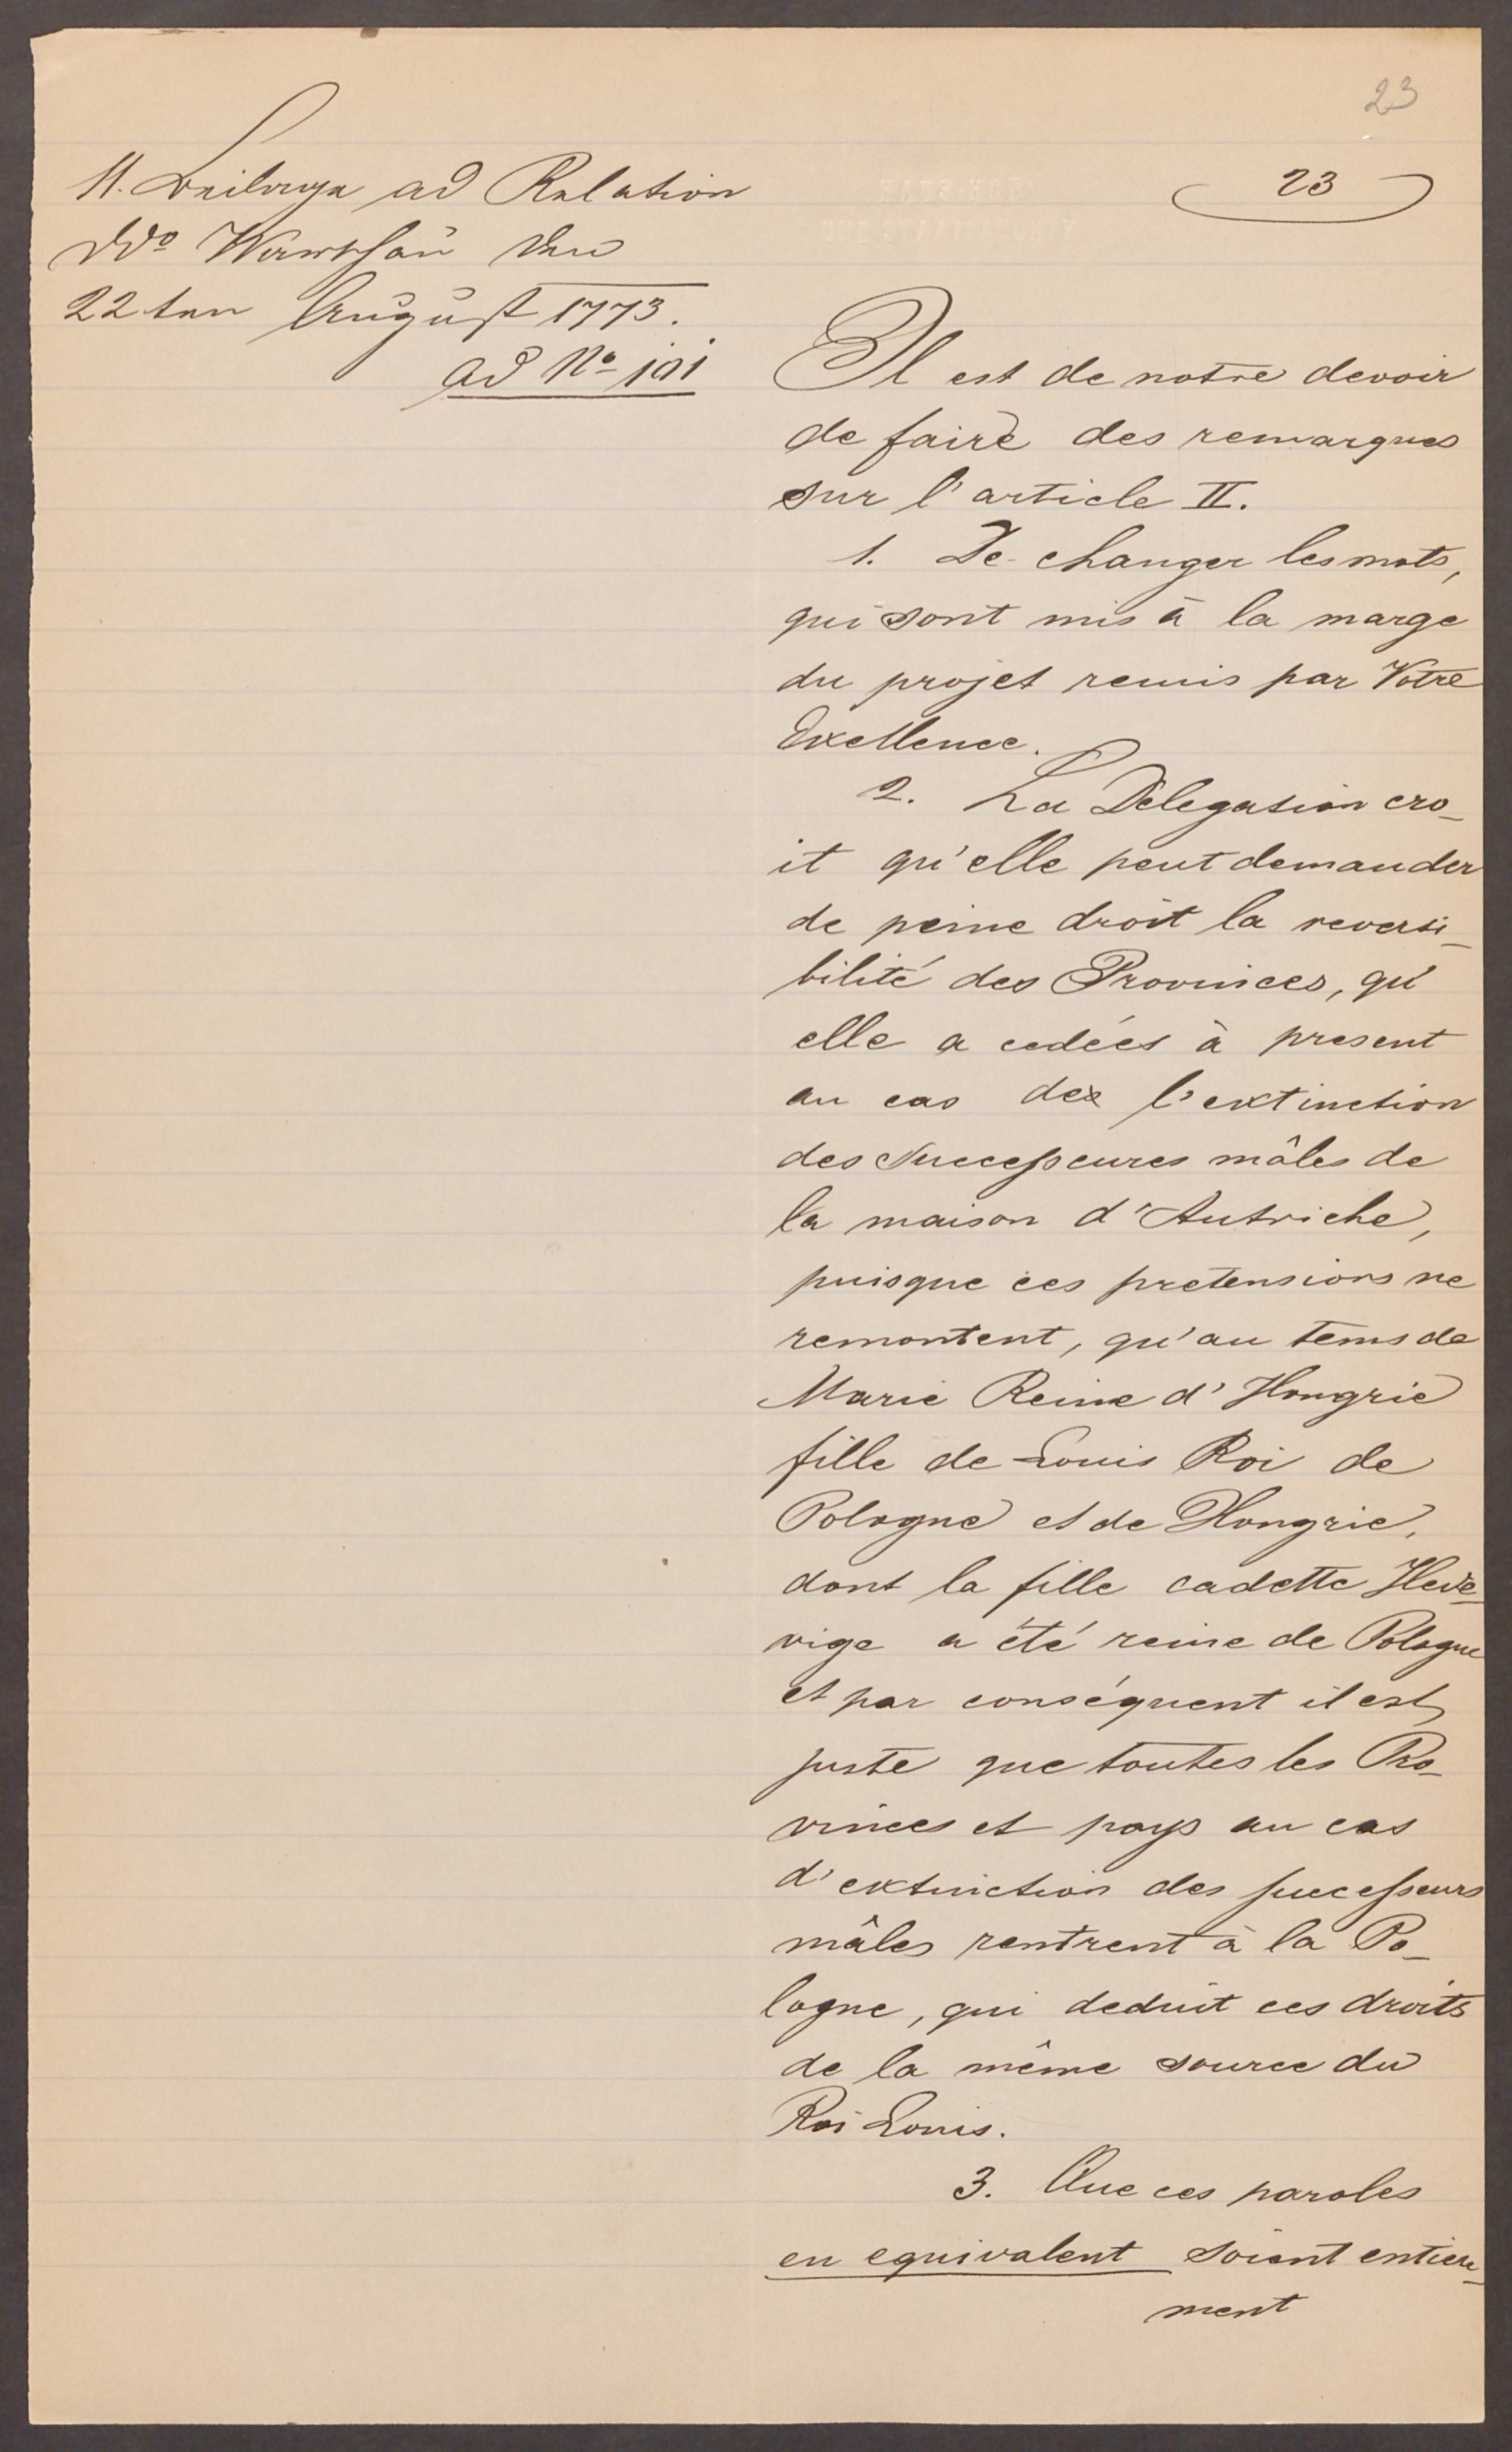 23
23
11. Beilage ad Relation
Ddo Warschau den
22ten August 1773.
ad No 101
Il est de notre devoir
de faire des remarques
sur l'article II.
1. De changer les mots,
qui sont mis à la marge
du projet remis par Votre
Exellence.
2. La Délegation cro_
it qu'elle peut demander
de peine droit la reversi_
bilité des Provinces, qu'
elle a cedées à present
au cas de l'extinction
des Successeures mâles de
la maison d'Autriche,
puisque ces prétensions ne
remontent, qu'au tems de
Marie Reine d'Hongrie
fille de Louis Roi de
Pologne et de Hongrie,
dont la fille cadette Hede_
vige a été reine de Pologne
et par conséquent il est
juste que toutes les Pro_
vinces et pays au cas
d'extinction des successeurs
mâles rentrent à la Po_
logne, qui deduit ces droits
de la même source du
Roi Louis.
3. Que ces paroles
en equivalent soient entiere_
ment